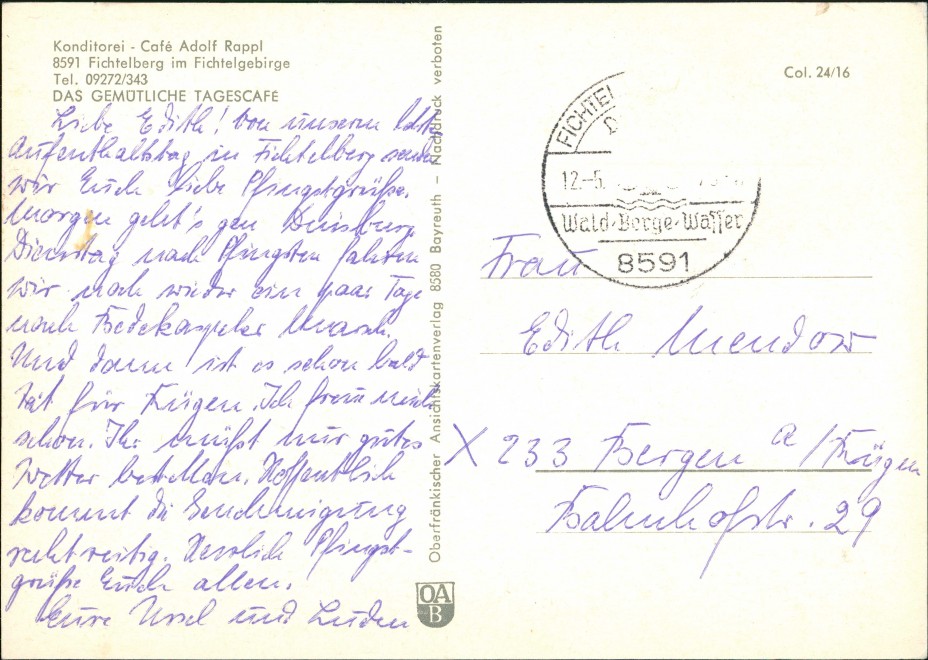 Konditorei - Café Adolf Rappl
8591 Fichtelberg im Fichtelgebirge
Tel. 09272/343
DAS GEMÜTLICHE TAGESCAFE
Col. 24/16
Liebe Edith! Von unserem letzt.
Aufenthaltstag in Fichtelberg senden
wir Euch liebe Pfingstgrüße.
Morgen geht's gen Duisburg
Dienstag nach Pfingsten fahren
wir noch wieder ein paar Tage
nach
Und dann ist es schon bald
Zeit für Rügen. Ich freu mich
schon. Ihr müßt nur gutes
Wetter bestellen. Hoffentlich
kommt die Genehmigung
rechtzeitig. Herzlich Pfingst-
grüße Euch allen.
Eure Ursel und
Oberfränkischer Ansichtskartenverlag 8580 Bayreuth – Nachdruck verboten
OA
B
FICHTEL
12.-5.
Wald·Berge·Wasser
8591
Frau
Edith Mendow
X 233 Bergen a/Rügen
Bahnhofstr. 29